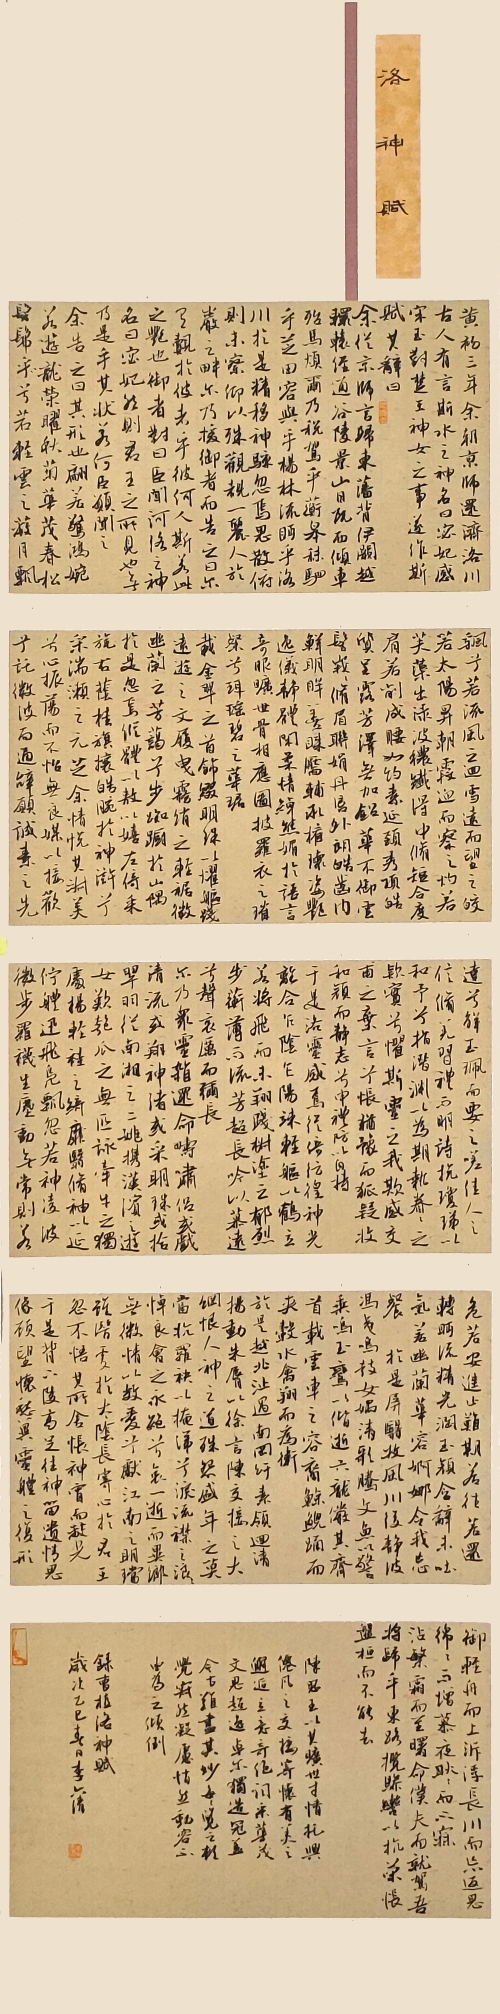 洛神賦
黃初三年余朝京師還濟洛川
古人有言斯水之神名曰宓妃感
宋玉對楚王神女之事遂作斯
賦其辭曰
余從京師言歸東藩背伊闕越
轘轅經通谷陵景山日既西傾車
殆馬煩爾乃稅駕乎蘅皋秣駟
乎芝田容與乎楊林流眄乎洛
川於是精移神駭忽焉思散俯
則未察仰以殊觀覩一麗人於
巖之畔尔乃援御者而告之曰尔
有覿於彼者乎彼何人斯若此
之艷也御者對曰臣聞河洛之神
名曰宓妃然則君王之所見也無
乃是乎其狀若何臣願聞之
余告之曰其形也翩若驚鴻婉
若遊龍榮曜秋菊華茂春松
髣髴乎兮若輕雲之蔽月飄
飄兮若流風之迴雪遠而望之皎
若太陽昇朝霞迫而察之灼若
芙蕖出淥波穠纖得中脩短合度
肩若削成腰如約素延頸秀項皓
質呈露芳澤無加鉛華不御雲
髻峩峩脩眉聯娟丹唇外朗皓齒內
鮮明眸善睞靨輔承權瓌姿艷
逸儀靜體閑柔情綽態媚於語言
奇服曠世骨相應圖披羅衣之璀
粲兮珥瑤碧之華琚
戴金翠之首飾綴明珠以耀軀踐
遠遊之文履曳霧綃之輕裾微
幽蘭之芳藹兮步踟躕於山隅
於是忽焉縱體以遨以嬉左倚采
旄右蔭桂旗攘皓腕於神滸兮
采湍瀨之元芝余情悅其淑美
兮心振蕩而不怡無良媒以接歡
兮託微波而通辭願誠素之先
達兮解玉珮而要之嗟佳人之
信脩羌習禮而明詩抗瓊珶以
和予兮指潛淵以為期執眷眷之
款實兮懼斯靈之我欺感交
甫之棄言兮悵猶豫而狐疑收
和顏而靜志兮申禮防以自持
于是洛靈感焉徙倚彷徨神光
離合乍陰乍陽竦輕軀以鶴立
若將飛而未翔踐椒塗之郁烈
步蘅薄而流芳超長吟以慕遠
兮聲哀厲而彌長
尔乃衆靈雜遝命疇嘯侶或戲
清流或翔神渚或采明珠或拾
翠羽從南湘之二姚攜漢濱之遊
女歎匏瓜之無匹詠牽牛之獨
處揚輕袿之綺靡翳脩袖以延
佇體迅飛鳧飄忽若神凌波
微步羅襪生塵動無常則若
危若安進止難期若往若還
轉眄流精光潤玉顏含辭未吐
氣若幽蘭華容婀娜令我忘
餐　於是屏翳收風川后靜波
馮夷鳴鼓女媧清歌騰文魚以警
乘鳴玉鸞以偕逝六龍儼其齊
首載雲車之容裔鯨鯢踊而
夾轂水禽翔而為衛
於是越北沚過南岡紆素領迴清
揚動朱脣以徐言陳交接之大
綱恨人神之道殊怨盛年之莫
當抗羅袂以掩涕兮淚流襟之浪浪
悼良會之永絕兮哀一逝而異鄉
無微情以效愛兮獻江南之明璫
雖潛處於太陰長寄心於君王
忽不悟其所舍悵神宵而蔽光
于是背下陵高足往神留遺情想
像顧望懷愁冀靈體之復形
御輕舟而上泝浮長川而忘返思
綿綿而增慕夜耿耿而不寐
沾繁霜而至曙命僕夫而就駕吾
將歸乎東路攬騑轡以抗策悵
盤桓而不能去
陳思王以其曠世才情托興
微風之交接寄懷有美之
邂逅立意奇絕詞采華茂
文思超逸卓尔獨造冠盖
今古難盡其妙每覽之輒
覺為之傾倒
錄曹植洛神賦
歲次乙巳春日